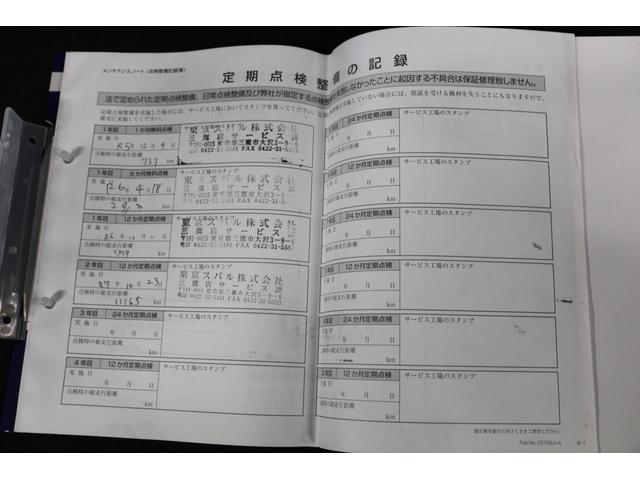 メンテナンスノート(点検整備記録簿)
定期点検整備の記録
法で定められた定期点検整備、日常点検整備及び弊社が指定する点検整
を実施しなかったことに起因する不具合は保証修理致しません。
定期点検整備を実施した場合には、サービス工場においてスタンプを買ってください。定期
確実に実施してください。
備を実施していない場合には、保証を受ける権利を失うことにもなりますので、
1年目 1か月無料点検
実施日
12月9日
点検時の総走行距離
737 km
東京スバル株式会
三鷹店サービス
〒181-0015 東京都三鷹市大沢3-9-6
電話 0422-32-3181 FAX 0422-31-555
1年目 6か月無料点検
サービス工場のスタンプ
実施日
R6年4月18日
点検時の総走行距離
km
東京スバル株式会
三鷹店サービス
〒181-0015 東京都三鷹市大沢3-9-6
電話 0422-32-3181 FAX 0422-31-5553
1年目 12か月定期点検
実施日
点検時の総走行距離
km
東京スバル株式会
三鷹店サービス
〒181-0015 東京都三鷹市大沢3-9-6
2年目 12か月定期点検
サービス工場のスタンプ
実施日
R7年10月23日
点検時の総走行距離
11165 km
東京スバル株式会社
三鷹店サービス課
〒181-0015 東京都三鷹市大沢3-9-6
電話 0422-32-3181 FAX 0422-31-5553
3年目 24か月定期点検
サービス工場のスタンプ
実施日
年 月 日
点検時の総走行距離
km
4年目 12か月定期点検
サービス工場のスタンプ
実施日
年 月 日
点検時の総走行距離
km
24か月定期点検
サービス工場のスタンプ
年 月 日
km
12か月定期点検
サービス工場のスタンプ
年 月 日
km
24か月定期点検
サービス工場のスタンプ
年 月 日
km
12か月定期点検
サービス工場のスタンプ
年 月 日
km
24か月定期点検
サービス工場のスタンプ
年 月 日
km
12か月定期点検
サービス工場のスタンプ
年 月 日
km